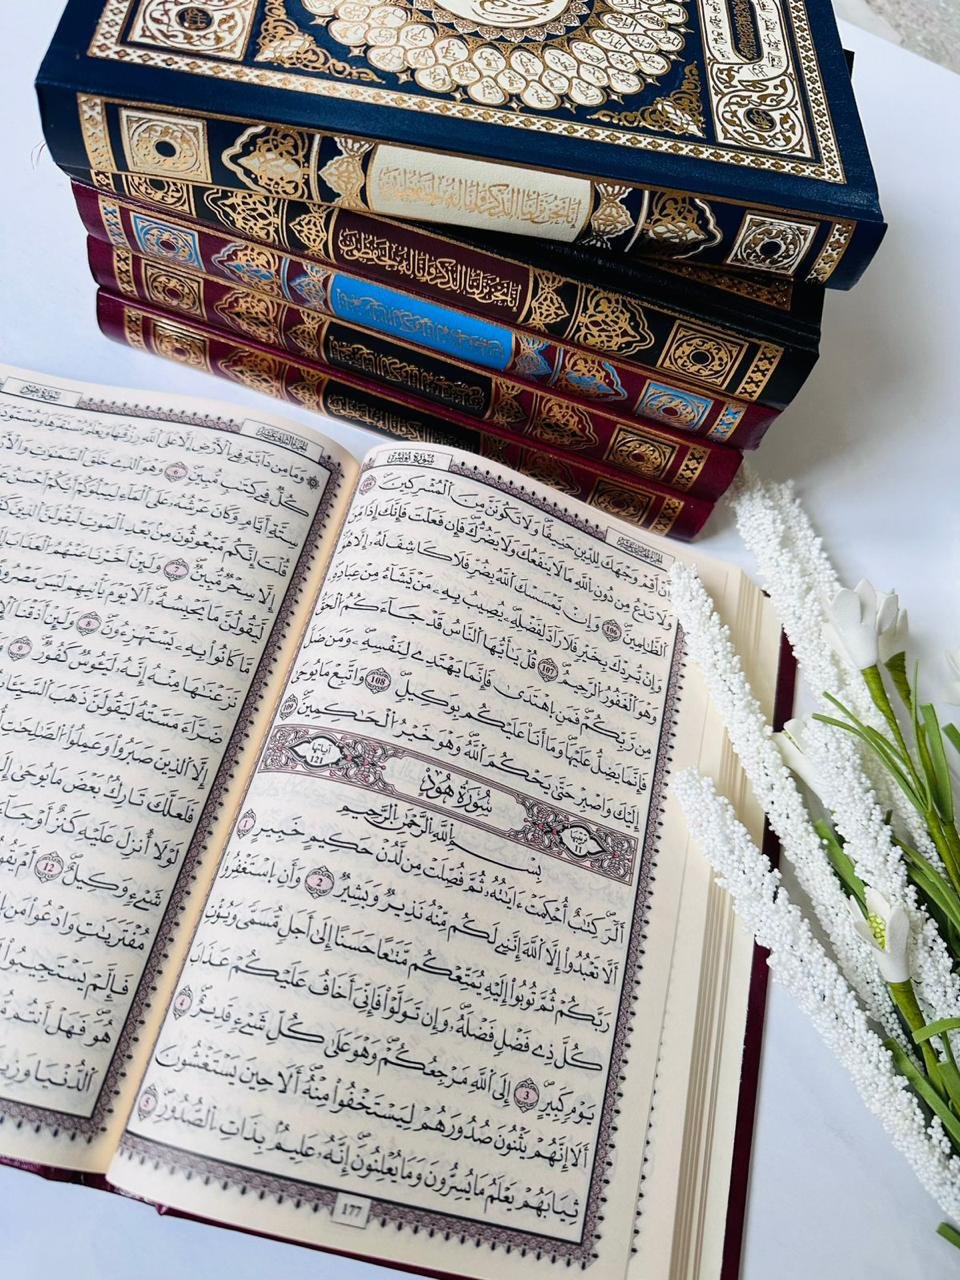 إنا نحن نزلنا الذكر وإنا له لحافظون
إنا نحن نزلنا الذكر وإنا له لحافظون
سورة يونس
أن أقم وجهك للدين حنيفا ولا تكونن من المشركين 105
ولا تدع من دون الله ما لا ينفعك ولا يضرك فإن فعلت فإنك إذا من
الظالمين 106 وإن يمسسك الله بضر فلا كاشف له إلا هو
وإن يردك بخير فلا راد لفضله يصيب به من يشاء من عباده
وهو الغفور الرحيم 107 قل يأيها الناس قد جاءكم الحق
من ربكم فمن اهتدى فإنما يهتدي لنفسه ومن ضل
فإنما يضل عليها وما أنا عليكم بوكيل 108 واتبع ما يوحى
إليك واصبر حتى يحكم الله وهو خير الحاكمين 109
سورة هود
آياتها 121
بسم الله الرحمن الرحيم
ألر كتاب احكمت ءاياته ثم فصلت من لدن حكيم خبير 1
ألا تعبدوا إلا الله إنني لكم منه نذير وبشير 2 وأن استغفروا
ربكم ثم توبوا إليه يمتعكم متاعا حسنا إلى أجل مسمى ويوت
كل ذي فضل فضله وإن تولوا فإني أخاف عليكم عذاب
يوم كبير 3 إلى الله مرجعكم وهو على كل شيء قدير 4
ألا إنهم يثنون صدورهم ليستخفوا منه ألا حين يستغشون
ثيابهم يعلم ما يسرون وما يعلنون إنه عليم بذات الصدور 5
177
سورة هود
وما من دابة في الأرض إلا على الله رزقها ويعلم مستقرها ومستودعها
كل في كتاب مبين 6 وهو الذي خلق السماوات والأرض
ستة أيام وكان عرشه على الماء ليبلوكم أيكم أحسن
قلت إنكم مبعوثون من بعد الموت ليقولن الذين
إلا سحر مبين 7 ولين أخرنا عنهم العذاب
ليقولن ما يحبسه ألا يوم ياتيهم ليس مصروفا
ما كانوا به يستهزءون 8 ولين أذقنا
نزعناها منه إنه ليئوس كفور 9
ضراء مسته ليقولن ذهب السيئات
إلا الذين صبروا وعملوا الصالحات
فلعلك تارك بعض ما يوحى
لولا أنزل عليه كنز أو جاء
شيء وكيل 12 أم يقولون
مفتريات وادعوا من
فإلم يستجيبوا
هو فهل أنتم
الدنيا